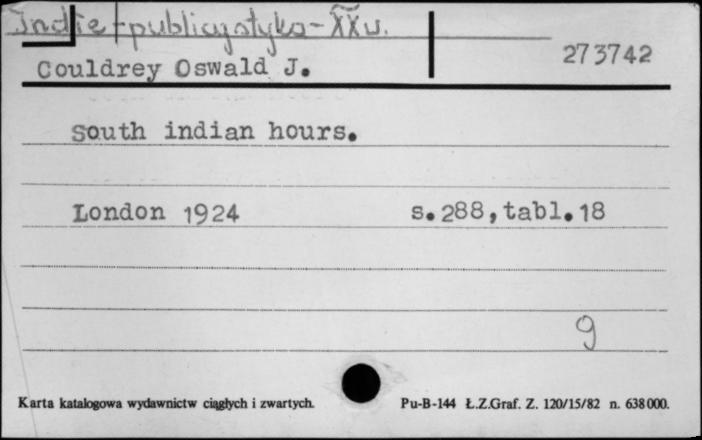 Indie - publicystyka - XX w.
273742
Couldrey Oswald J.
South indian hours.
London 1924 s. 288, tabl. 18
g
Karta katalogowa wydawnictw ciągłych i zwartych. Pu-B-144 Ł.Z.Graf. Z. 120/15/82 n. 638000.